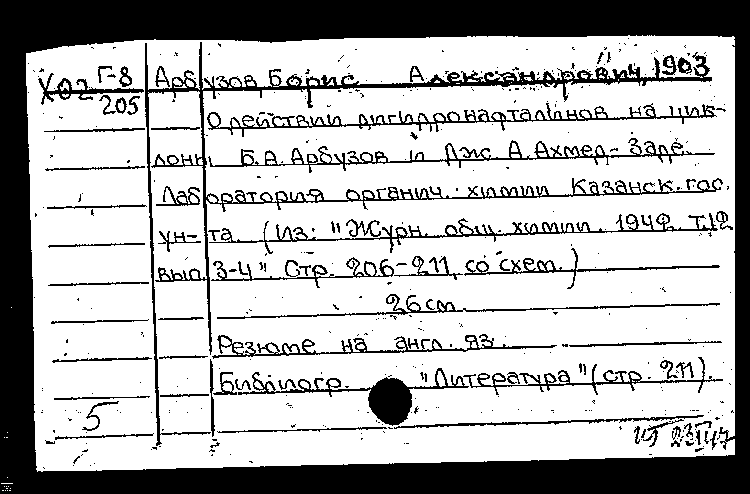 Х02 Г-8 Арбузов, Борис Александрович, 1903
205
О действии дигидронафталинов на цик-
лоны Б.А. Арбузов и Дж. А. Ахмед-Заде.
Лаборатория органич. химии Казанск. гос.
ун-та. (Из: "Журн. общ. химии. 1942. Т.12
вып. 3-4". Стр. 206-211, со схем.)
26 см.
Резюме на англ. яз.
Библиогр. "Литература" (стр. 211).
5